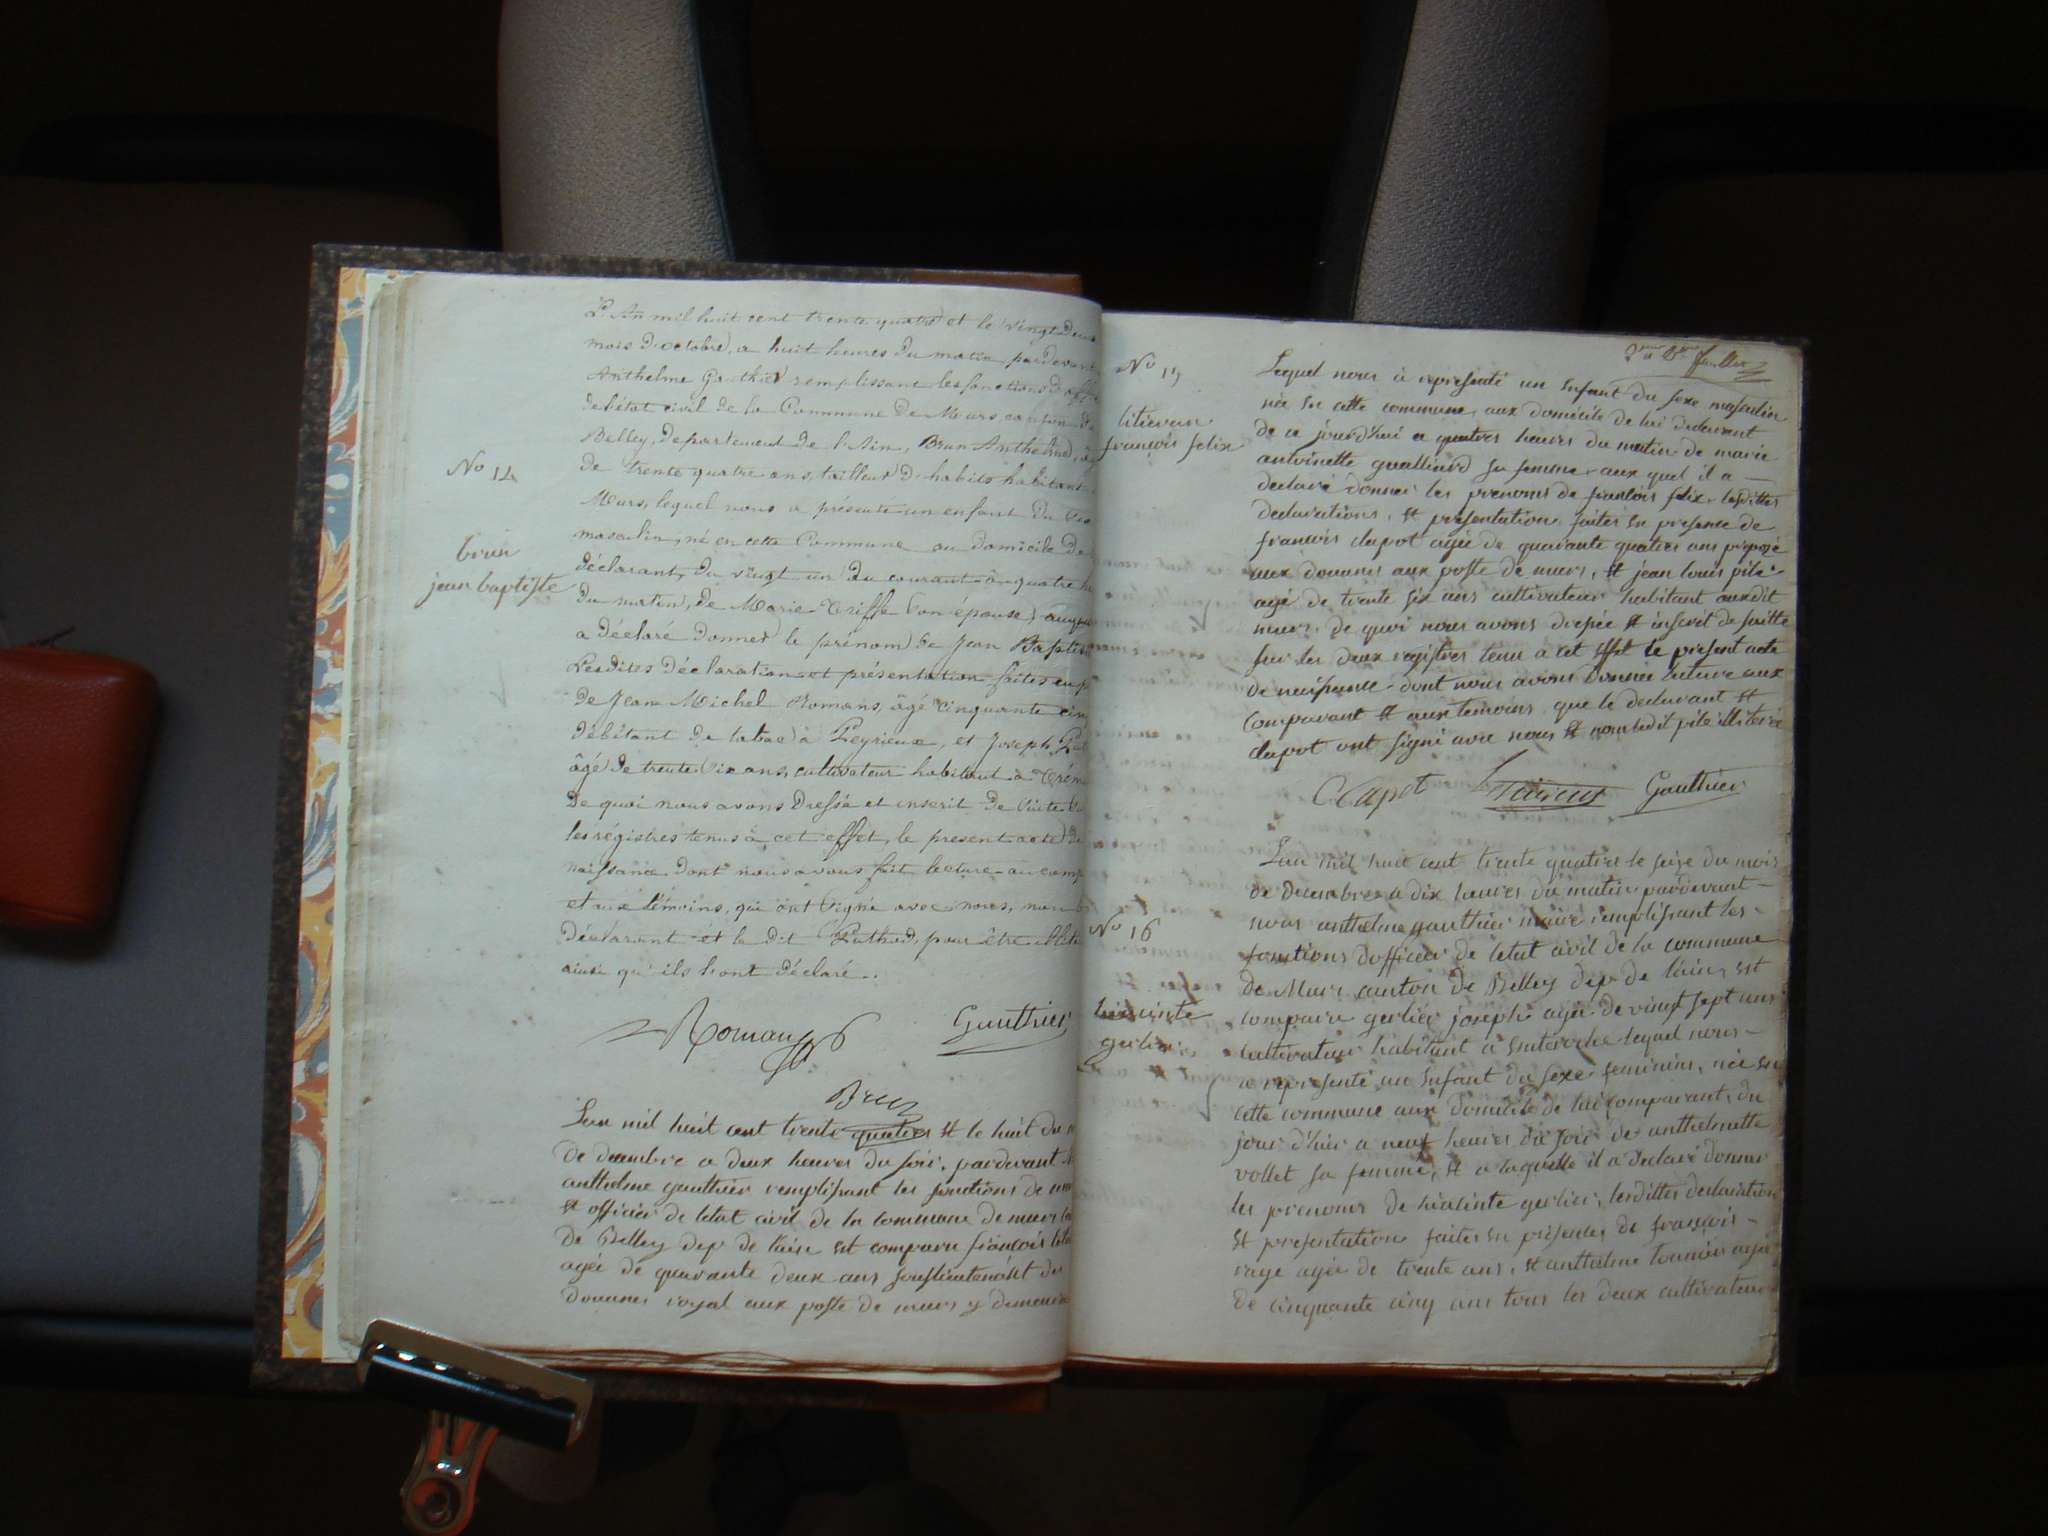 L'An mil huit cent trente quatre et le vingt deux
mois d'octobre, a huit heures du matin, pardevant
Anthelme Gauthier remplissant les fonctions d'offi
de l'état civil de la Commune de Meurs canton de
Belley, departement de l'Ain, Brun Anthelme, âg
No 14
de trente quatre ans, tailleur d'habits habitant
Murs, lequel nous a présenté un enfant du Sex
masculin, né en cette Commune au domicile de
brun
jean baptiste
déclarant, du vingt un du courant à quatre he
du matin, de Marie Triffe son épouse, auqu
a déclaré donner le prénom de Jean Baptiste
Lesdites déclaration et présentation faites en p
de Jean Michel Romans, âgé cinquante cin
débitant de tabac à Peyrieux, et Joseph
âgé de trente six ans, cultivateur habitant à
De quoi nous avons Dressé et inscrit de suite
les régistres tenus à cet effet, le present acte de
naissance dont nous avons fait lecture au comp
et aux témoins, qui ont signé avec nous, non
Déclarant et le dit Puthod, pour être illite
ainsi qu'ils l'ont déclaré.
Romans Gauthier
Brun
Lan mil huit cent trente quatres et le huit du m
de decembre a deux heures du soir, pardevant
anthelme gauthier remplissant les fonctions de
et officier de letat civil de la commune de murs
de Belley dep de lain est comparu francois
agée de quarante deux ans souslieutenant des
douanes royal aux poste de murs y demeura
feuillet
No 15
françois felix
Lequel nous à représenté un enfant du sexe masculin
née en cette commune, aux domicile de lui declarant
de ce jourd'hui a quatres heures du matin de marie
antoinette gualliard sa femme aux quel il a
declaré donner les prenoms de francois felix, lesdittes
declarations, et presentation faites en presence de
francois clapot agée de quarante quatres ans preposé
aux douanes aux poste de murs, et jean louis pile
agé de trente six ans cultivateur habitant auxdit
murs, de quoi nous avons drepée et inscrit de suitte
sur les deux registres tenu a cet effet le present acte
de naissance dont nous avons Donnée lecture aux
comparant et aux temoins que le declarant et
clapot ont signé avec nous et non ledit pile illiterée
Clapot Gauthier
Lan mil huit cent trente quatres le seize du mois
de Decembre a dix heures du matin pardevant
No 16
nous anthelme gauthier maire remplissant les
fonctions dofficier de letat civil de la commune
de Murs canton de Belley dep de lain, est
hiacinte
gerlier
comparu gerlier joseph agée de vingt sept ans
cultivateur habitant a lequel nous
a representé un enfant du sexe feminins, née en
cette commune aux domicile de lui comparant, du
jour d'hier a neuf heures du soir de anthelmette
vollet sa femme, et a laquelle il a Declaré donner
les prenoms de hiacinte gerlier, lesdittes declaration
et presentation faites en presence de françois
raye agée de trente ans, et anthelme tournier agée
de cinquante cinq ans tous les deux cultivateur